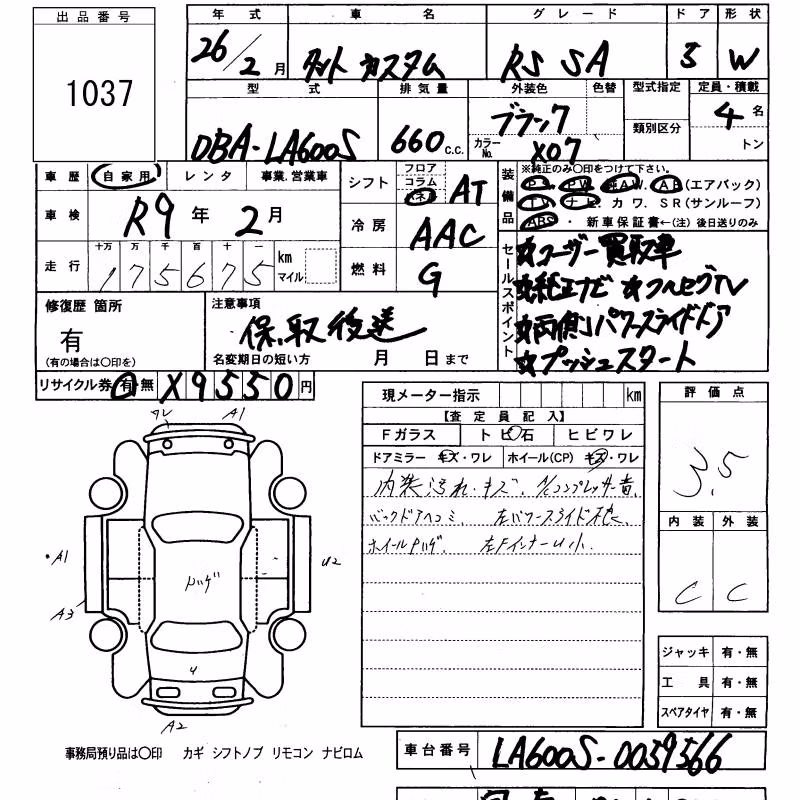 出品番号
1037
年式 車名 グレード ドア 形状
26/2月 タント カスタム RS SA 5 W
型式 排気量 外装色 色替 型式指定 定員・積載
DBA-LA600S 660 c.c. ブラック 類別区分 4名
カラーNo. X07 トン
車歴 自家用 レンタ 事業.営業車
車検 R9年 2月
走行 十万 万 千 百 十 一
175675 km マイル
シフト フロア コラム パネル AT
冷房 AAC
燃料 G
装備品 ※純正のみ〇印をつけて下さい。
PS. PW. 純AW. AB(エアバック)
TV. ナビ. カワ. SR(サンルーフ)
ABS・ 新車保証書←(注) 後日送りのみ
セールスポイント
☆ユーザー買取車
☆純正ナビ ☆フルセグTV
☆両側パワースライドドア
☆プッシュスタート
修復歴 箇所
有
(有の場合は〇印を)
注意事項
保.取後送
名変期日の短い方 月 日まで
リサイクル券 有・無 ¥9550円
現メーター指示 km
【査定員記入】
Fガラス トビ石 ヒビワレ
ドアミラー キズ・ワレ ホイール(CP) キズ・ワレ
内装汚れ・キズ. A/Cコンプレッサー音.
バックドアヘコミ. 左パワースライド不良.
左FインナーU小.
評価点
3.5
内装 外装
C C
ワレ A1
・A1
A3
U2
A2
ジャッキ 有・無
工具 有・無
スペアタイヤ 有・無
事務局預り品は〇印 カギ シフトノブ リモコン ナビロム
車台番号 LA600S-0059566